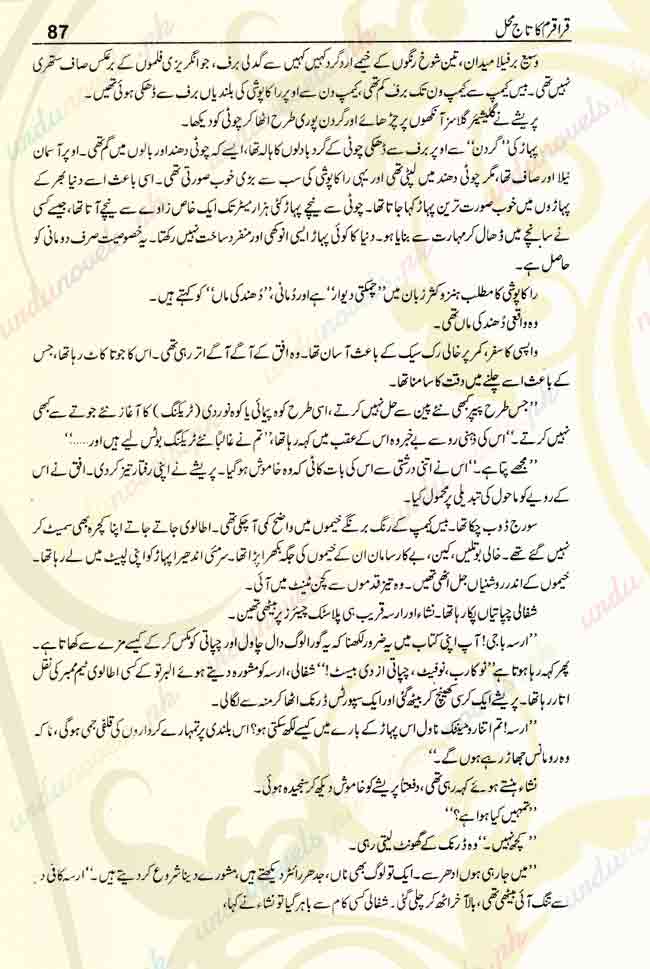 قراقرم کا تاج محل 87
وسیع برفیلا میدان، تین شوخ رنگوں کے خیمے اردگرد کہیں کہیں سے گدلی برف، جو انگریزی فلموں کے برعکس صاف ستھری
نہیں تھی۔ بیس کیمپ سے کیمپ ون تک برف کم تھی، کیمپ ون سے اوپر راکا پوشی کی بلندیاں برف سے ڈھکی ہوئی تھیں۔
پریشے نے گلیشیئر گلاسز آنکھوں پر چڑھائے اور گردن پوری طرح اٹھا کر چوٹی کو دیکھا۔
پہاڑ کی ’’گردن‘‘ سے اوپر برف سے ڈھکی چوٹی کے گرد بادلوں کا ہالہ تھا، ایسے کہ چوٹی دھند اور بالوں میں گم تھی۔ اوپر آسمان
نیلا اور صاف تھا، مگر چوٹی دھند میں لپٹی تھی اور یہی راکا پوشی کی سب سے بڑی خوب صورتی تھی۔ اسی باعث اسے دنیا بھر کے
پہاڑوں میں خوب صورت ترین پہاڑ کہا جاتا تھا۔ چوٹی سے نیچے پہاڑ کئی ہزار میٹر تک ایک خاص زاویے سے نیچے آتا تھا، جیسے کسی
نے سانچے میں ڈھال کر مہارت سے بنایا ہو۔ دنیا کا کوئی پہاڑ ایسی انوکھی اور منفرد ساخت نہیں رکھتا۔ یہ خصوصیت صرف دومانی کو
حاصل ہے۔
راکا پوشی کا مطلب ہنزوکٹز زبان میں ’’چمکتی دیوار‘‘ ہے اور دُمانی، ’’دُھند کی ماں‘‘ کو کہتے ہیں۔
وہ واقعی دُھند کی ماں تھی۔
واپسی کا سفر، کمر پر خالی رک سیک کے باعث آسان تھا۔ وہ افق کے آگے آگے اتر رہی تھی۔ اس کا جوتا کاٹ رہا تھا، جس
کے باعث اسے چلنے میں دقت کا سامنا تھا۔
’’جس طرح پیپر کبھی نئے پین سے حل نہیں کرتے، اسی طرح کوہ پیمائی یا کوہ نوردی (ٹریکنگ) کا آغاز نئے جوتے سے کبھی
نہیں کرتے۔‘‘ اس کی ذہنی رو سے بے خبر وہ اس کے عقب میں کہہ رہا تھا، ’’تم نے غالباً نئے ٹریکنگ بوٹس لیے ہیں اور.....‘‘
’’مجھے پتا ہے۔‘‘ اس نے اتنی درشتی سے اس کی بات کاٹی کہ وہ خاموش ہو گیا۔ پریشے نے اپنی رفتار تیز کر دی۔ افق نے اس
کے رویے کو ماحول کی تبدیلی پر محمول کیا۔
سورج ڈوب چکا تھا۔ بیس کیمپ کے رنگ برنگے خیموں میں واضح کمی آ چکی تھی۔ اطالوی جاتے جاتے اپنا کچرہ بھی سمیٹ کر
نہیں گئے تھے۔ خالی بوتلیں، کین، بے کار سامان ان کے خیموں کی جگہ بکھرا پڑا تھا۔ سرمئی اندھیرا پہاڑ کو اپنی لپیٹ میں لے رہا تھا۔
خیموں کے اندر روشنیاں جل اٹھی تھیں۔ وہ تیز قدموں سے کچن ٹینٹ میں آئی۔
شفالی چپاتیاں پکا رہا تھا۔ نشاء اور ارسہ قریب ہی پلاسٹک چیئرز پر بیٹھی تھیں۔
’’ارسہ باجی! آپ اپنی کتاب میں یہ ضرور لکھنا کہ یہ گورا لوگ دال چاول اور چپاتی کو مکس کر کے کیسے مزے سے کھاتا ہے۔
پھر کہہ رہا ہوتا ہے ’’نو کارب، نوفیٹ، چپاتی از دی بیسٹ!‘‘ شفالی، ارسہ کو مشورہ دیتے ہوئے البرتو کے کسی اطالوی ٹیم ممبر کی نقل
اتار رہا تھا۔ پریشے ایک کرسی کھینچ کر بیٹھ گئی اور ایک سپورٹس ڈرنک اٹھا کر منہ سے لگالی۔
’’ارسہ! تم اتنا رومینٹک ناول اس پہاڑ کے بارے میں کیسے لکھ سکتی ہو؟ اس بلندی پر تمہارے کرداروں کی قلفی جمی ہو گی، نا کہ
وہ رومانس جھاڑ رہے ہوں گے۔‘‘
نشاء ہنستے ہوئے کہہ رہی تھی، دفعتاً پریشے کو خاموش دیکھ کر سنجیدہ ہوئی۔
’’تمہیں کیا ہوا ہے؟‘‘
’’کچھ نہیں۔‘‘ وہ ڈرنک کے گھونٹ لیتی رہی۔
’’میں جا رہی ہوں ادھر سے۔ ایک تو لوگ بھی ناں، جدھر رائٹر دیکھتے ہیں، مشورے دینا شروع کر دیتے ہیں۔‘‘ ارسہ کافی د
سے تنگ آئی بیٹھی تھی، بالآخر اٹھ کر چلی گئی۔ شفالی کسی کام سے باہر گیا تو نشاء نے کہا،
urdunovels.pk